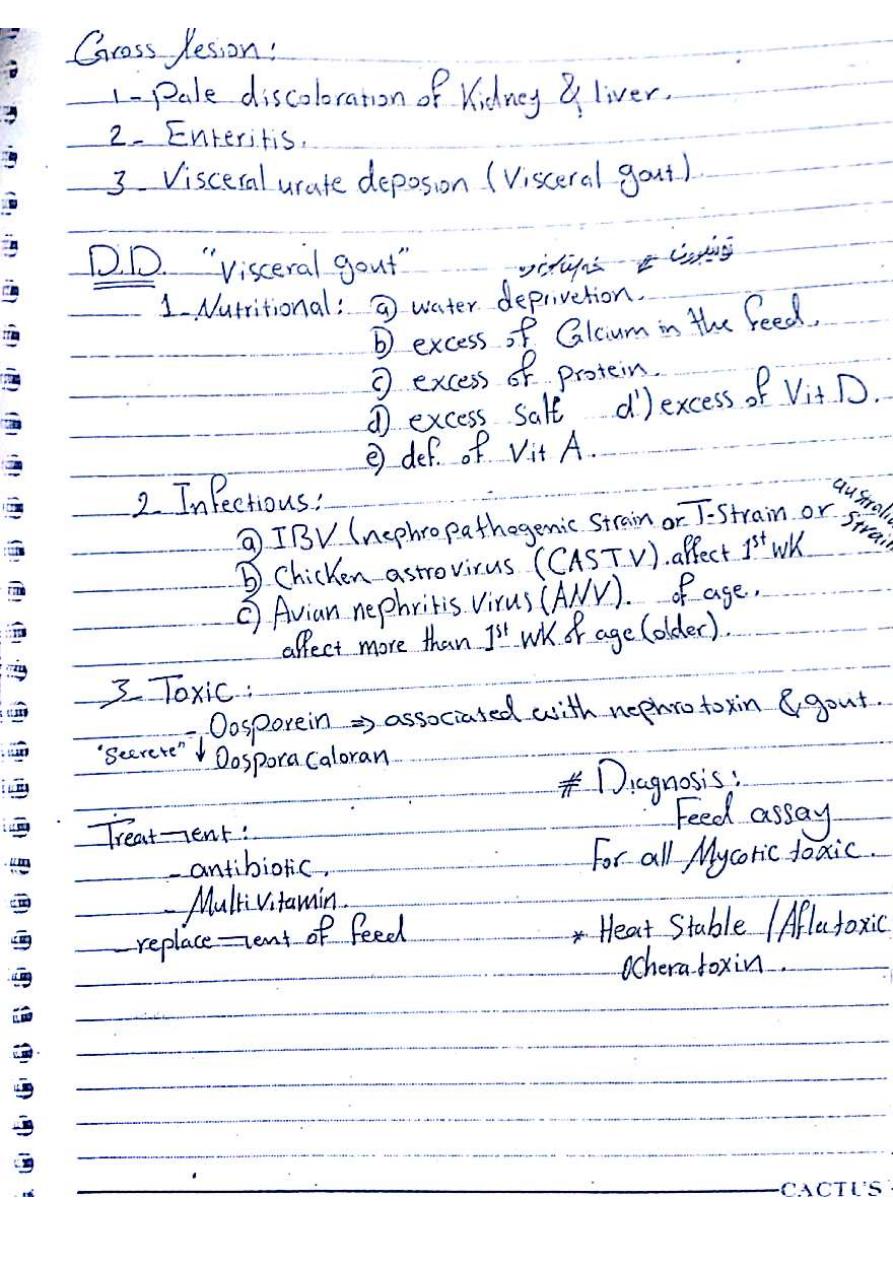 Gross lesion:
1- Pale discoloration of Kidney & liver.
2- Enteritis.
3- Visceral urate deposion (Visceral gout)
D.D. "Visceral gout"
1- Nutritional: a) water deprivetion.
b) excess of Calcium in the feed.
c) excess of protein.
d) excess Salt d') excess of Vit D.
e) def. of Vit A.
2- Infectious:
a) IBV (nephropathogenic Strain or T-Strain or australia Strain
b) Chicken astrovirus (CASTV). affect 1st wK
c) Avian nephritis Virus (ANV). of age.
affect more than 1st wK of age (older).
3- Toxic:
- Oosporein ⇒ associated with nephrotoxin & gout.
"Secrete" ↓ Oospora Caloran
# Diagnosis:
Feed assay
For all Mycotic toxic.
* Heat Stable / Aflatoxic
Ocheratoxin.
Treatment:
- antibiotic.
- Multivitamin.
- replacement of feed
CACTUS